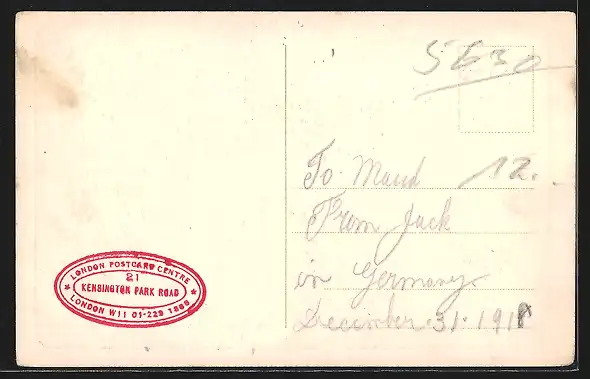 5630
To Maud 12.
From Jack
in Germany
December 31. 1918
LONDON POSTCARD CENTRE
21
KENSINGTON PARK ROAD
LONDON W11 01-229 1888